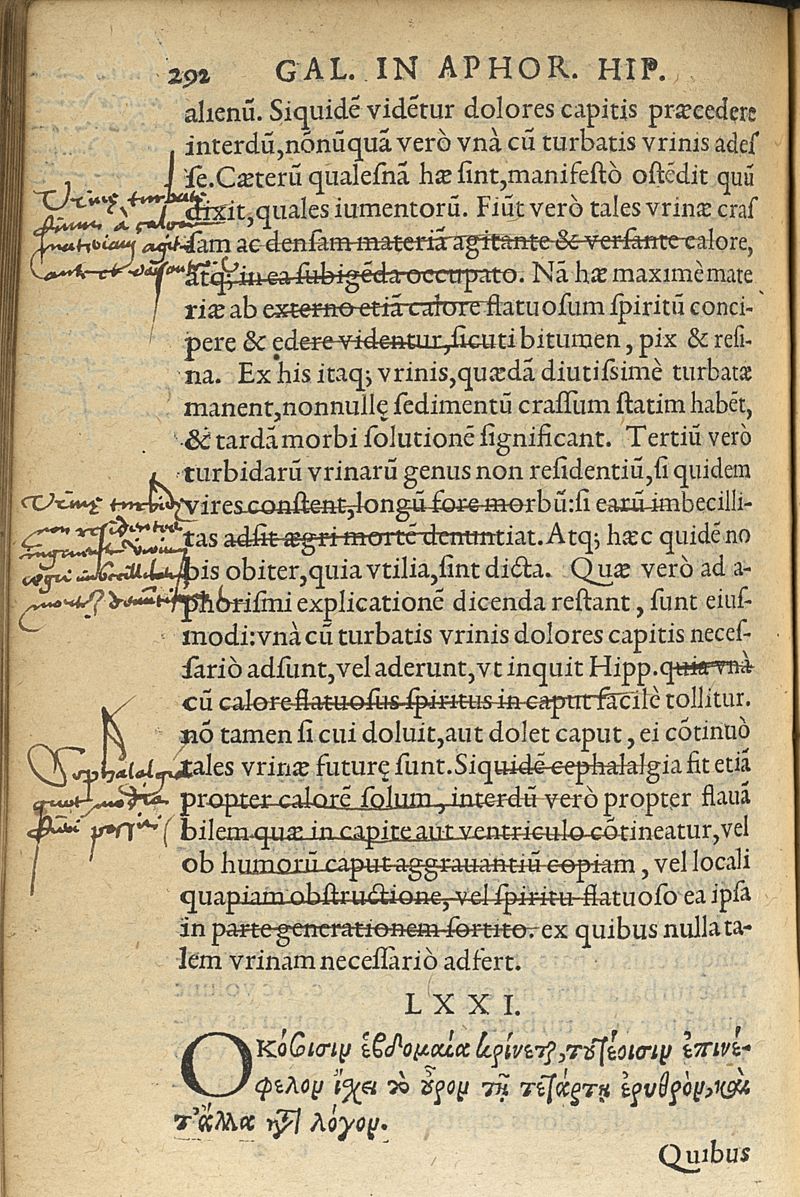 292 GAL. IN APHOR. HIP.
alienū. Siquidē vidētur dolores capitis præcedere
interdū, nōnūquā verò vnà cū turbatis vrinis ades
se. Cæterū qualesnā hæ sint, manifestò ostēdit quū
dixit, quales iumentorū. Fiūt verò tales vrinæ cras
sam ac densam materiā agitante & versante calore,
atq; in ea subigēda occupato. Nā hæ maximè mate
riæ ab externo etiā calore flatuosum spiritū conci-
pere & edere videntur, sicuti bitumen, pix & resi-
na. Ex his itaq; vrinis, quædā diutissimè turbatæ
manent, nonnullę sedimentū crassum statim habēt,
& tardā morbi solutionē significant. Tertiū verò
turbidarū vrinarū genus non residentiū, si quidem
vires constent, longū fore morbū: si earū imbecilli-
tas adsit ægri mortē denuntiat. Atq; hæc quidē no
bis obiter, quia vtilia, sint dicta. Quæ verò ad a-
phorismi explicationē dicenda restant, sunt eius-
modi: vnà cū turbatis vrinis dolores capitis neces-
sariò adsunt, vel aderunt, vt inquit Hipp. quia vnà
cū calore flatuosus spiritus in caput facilè tollitur.
nō tamen si cui doluit, aut dolet caput, ei cōtinuò
tales vrinæ futurę sunt. Siquidē cephalalgia fit etiā
propter calorē solum, interdū verò propter flauā
bilem quæ in capite aut ventriculo cōtineatur, vel
ob humorū caput aggrauantiū copiam, vel locali
quapiam obstructione, vel spiritu flatuoso ea ipsa
in parte generationem sortito. ex quibus nulla ta-
lem vrinam necessariò adfert.
Vrinę turbatę
fiunt à calore
Vrinę turbidę
non residentes
Cephalalgia
quot modis
fieri possit
LXXI.
Ὁκόσισιν ἑβδομαῖα κρίνεται, τουτέοισιν ἐπινέ-
φελον ἴχει τὸ οὖρον τῇ τετάρτῃ ἐρυθρὸν, καὶ
τ' ἄλλα κατὰ λόγον.
Quibus